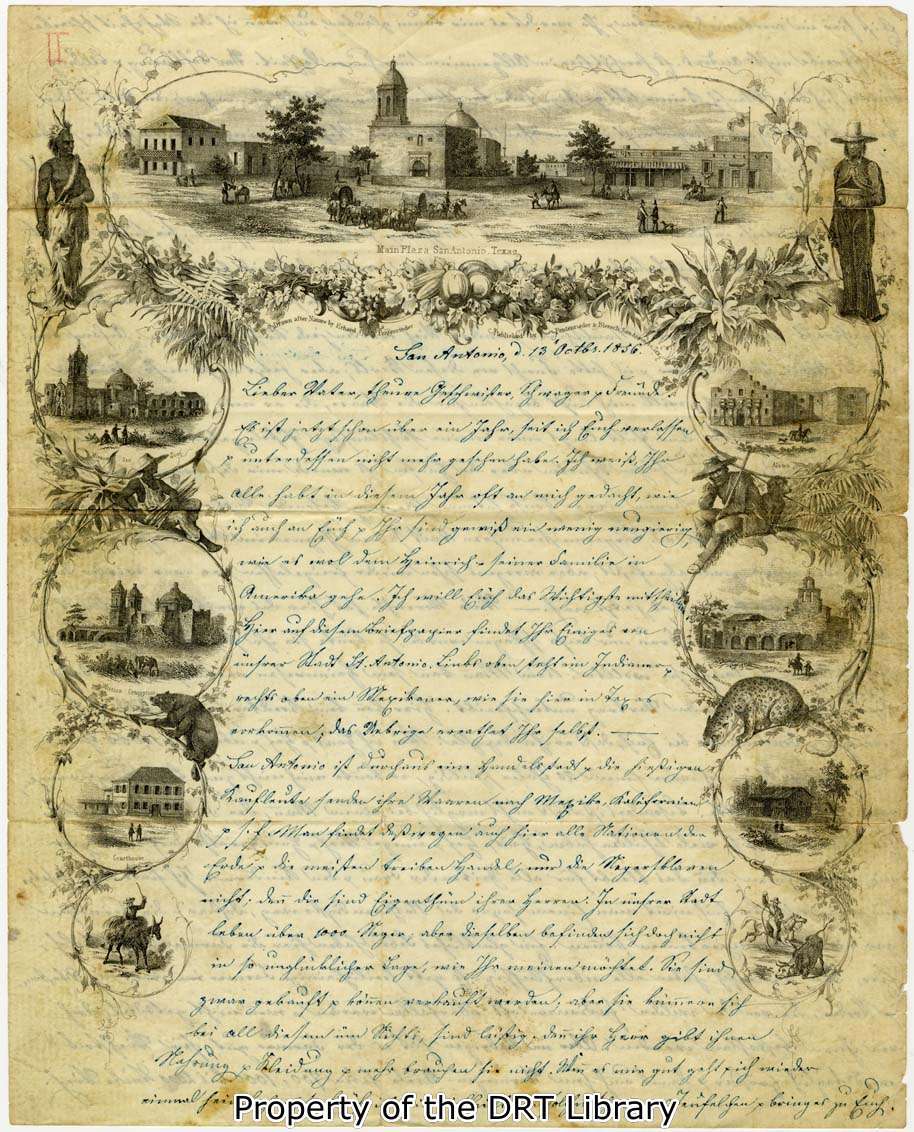 II
Main Plaza San Antonio, Texas
Drawn after Nature by Erhard Pentenrieder
Published Pentenrieder & Blersch
San Antonio, d. 13 Octbr. 1856.
Lieber Vater, theure Geschwister, Schwager & Freunde.
Es ist jetzt schon über ein Jahr, seit ich Euch verlassen
& unterdessen nicht mehr gesehen habe. Ich weiß, Ihr
alle habt in diesem Jahr oft an mich gedacht, wie
ich auch an Euch & Ihr seid gewiß ein wenig neugierig,
wie es wol dem Heinrich & seiner Familie in
Amerika gehe. Ich will Euch das Wichtigste mittheilen
Hier auf diesem Briefpapier findet Ihr Einiges von
unsrer Stadt St. Antonio. Links oben steht ein Indianer &
rechts oben ein Mexikaner, wie sie hier in Texas
vorkommen, das Uebrige errathet Ihr selbst. —
San Antonio ist durchaus eine Handelsstadt & die hiesigen
Kaufleute senden ihre Waaren nach Mexiko, Kalifornien
& s. f. Man findet deßwegen auch hier alle Nationen der
Erde & die meisten treiben Handel, nur die Negersklaven
nicht, denn die sind Eigenthum ihrer Herren. In unsrer Stadt
leben über 1000 Neger; aber dieselben befinden sich doch nicht
in so unglücklicher Lage, wie Ihr meinen möchtet. Sie sind
zwar gekauft & können verkauft werden, aber sie kümmern sich
bei all diesem um Nichts, sind lustig, denn ihr Herr gibt ihnen
Nahrung & Kleidung & mehr brauchen sie nicht. Wenn es mir gut geht & ich wieder
einmal Teufelchen & bringe es zu Euch.
Alamo
Mission Conception
Courthouse
Property of the DRT Library